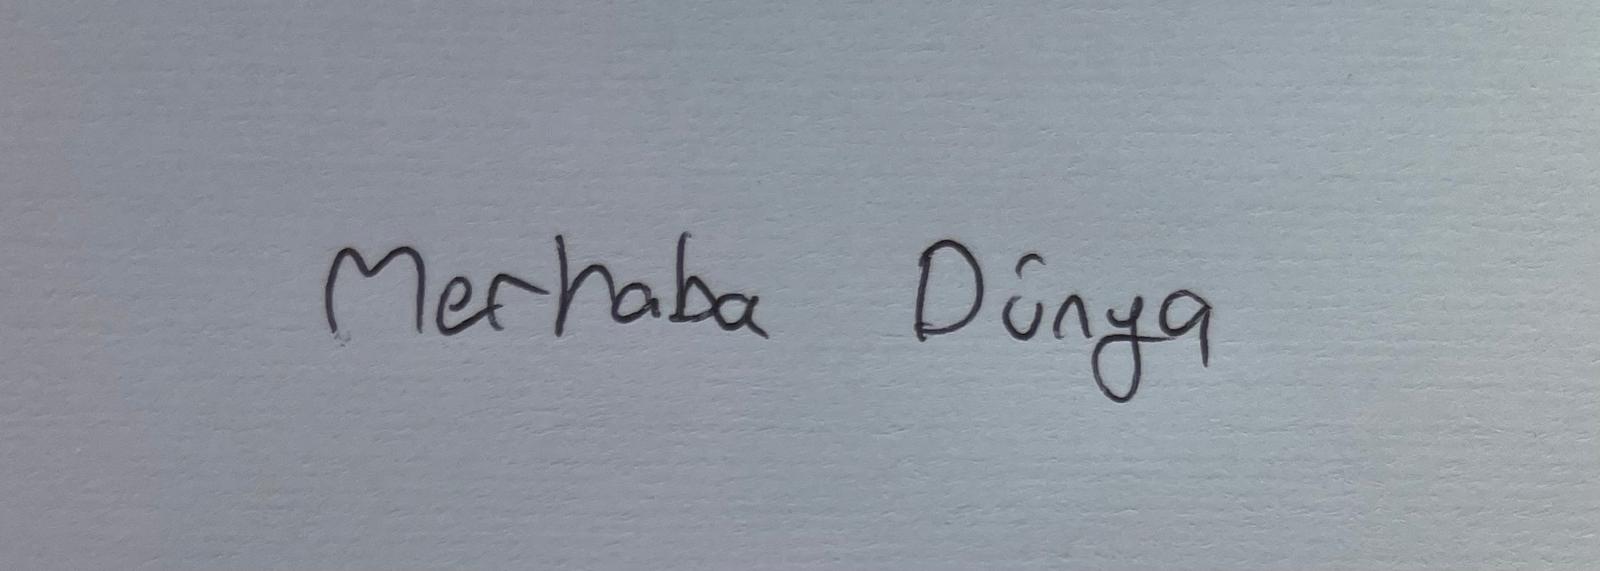 Merhaba Dünya